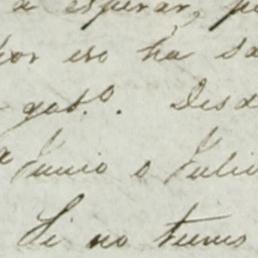 a esperar, p
por eso ha sa
gas.º. Desd
Junio o Julio
Si no tienes